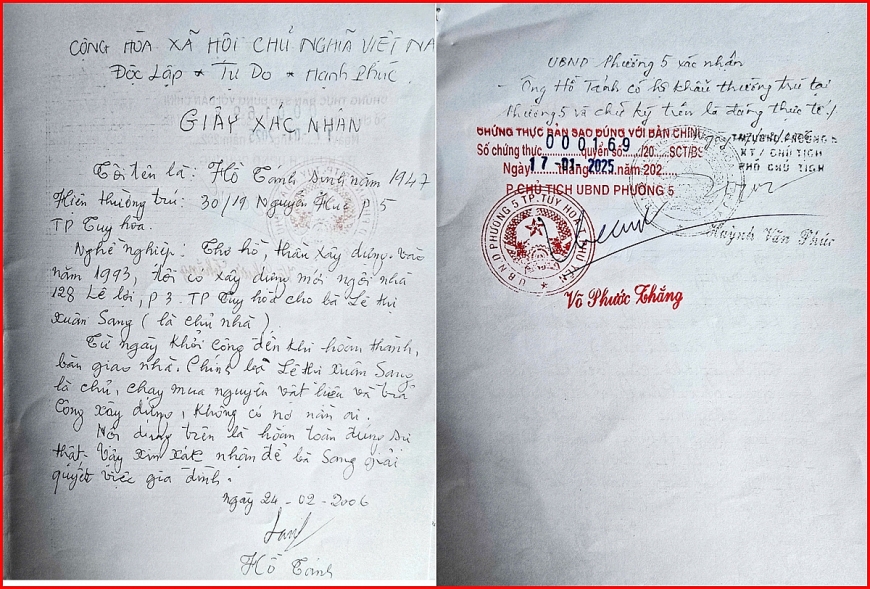 CỘNG HÒA XÃ HỘI CHỦ NGHĨA VIỆT NA
Độc Lập * Tự Do * Hạnh Phúc.
GIẤY XÁC NHẬN
Tôi tên là: Hồ Tánh sinh năm 1947
Hiện thường trú: 30/19 Nguyễn Huệ P 5
TP Tuy hòa.
Nghề nghiệp: Thợ hồ, thầu xây dựng. Vào
năm 1993, tôi có xây dựng mới ngôi nhà
128 Lê lợi, P 3. TP Tuy hòa cho bà Lê thị
Xuân Sang (là chủ nhà).
Từ ngày khởi công đến khi hoàn thành,
bàn giao nhà. Chính bà Lê thị Xuân Sang
là chủ, chạy mua nguyên vật liệu và trả
Công xây dựng, không có nợ nần ai.
Nội dung trên là hoàn toàn đúng sự
thật. Vậy xin xác nhận để bà Sang giải
quyết việc gia đình.
ngày 24-02-2006
Hồ Tánh
UBND Phường 5 xác nhận
- Ông Hồ Tánh có hộ khẩu thường trú tại
Phường 5 và chữ ký trên là đúng thực tế/
CHỨNG THỰC BẢN SAO ĐÚNG VỚI BẢN CHÍNH
Số chứng thực 000169 quyển số.../20.....SCT/BS
Ngày 17-01-2025 tháng năm 202
P.CHỦ TỊCH UBND PHƯỜNG 5
KT/ CHỦ TỊCH
PHÓ CHỦ TỊCH
U.B.N.D PHƯỜNG 5 T.P TUY HÒA
Huỳnh Văn Phúc
Võ Phước Thắng